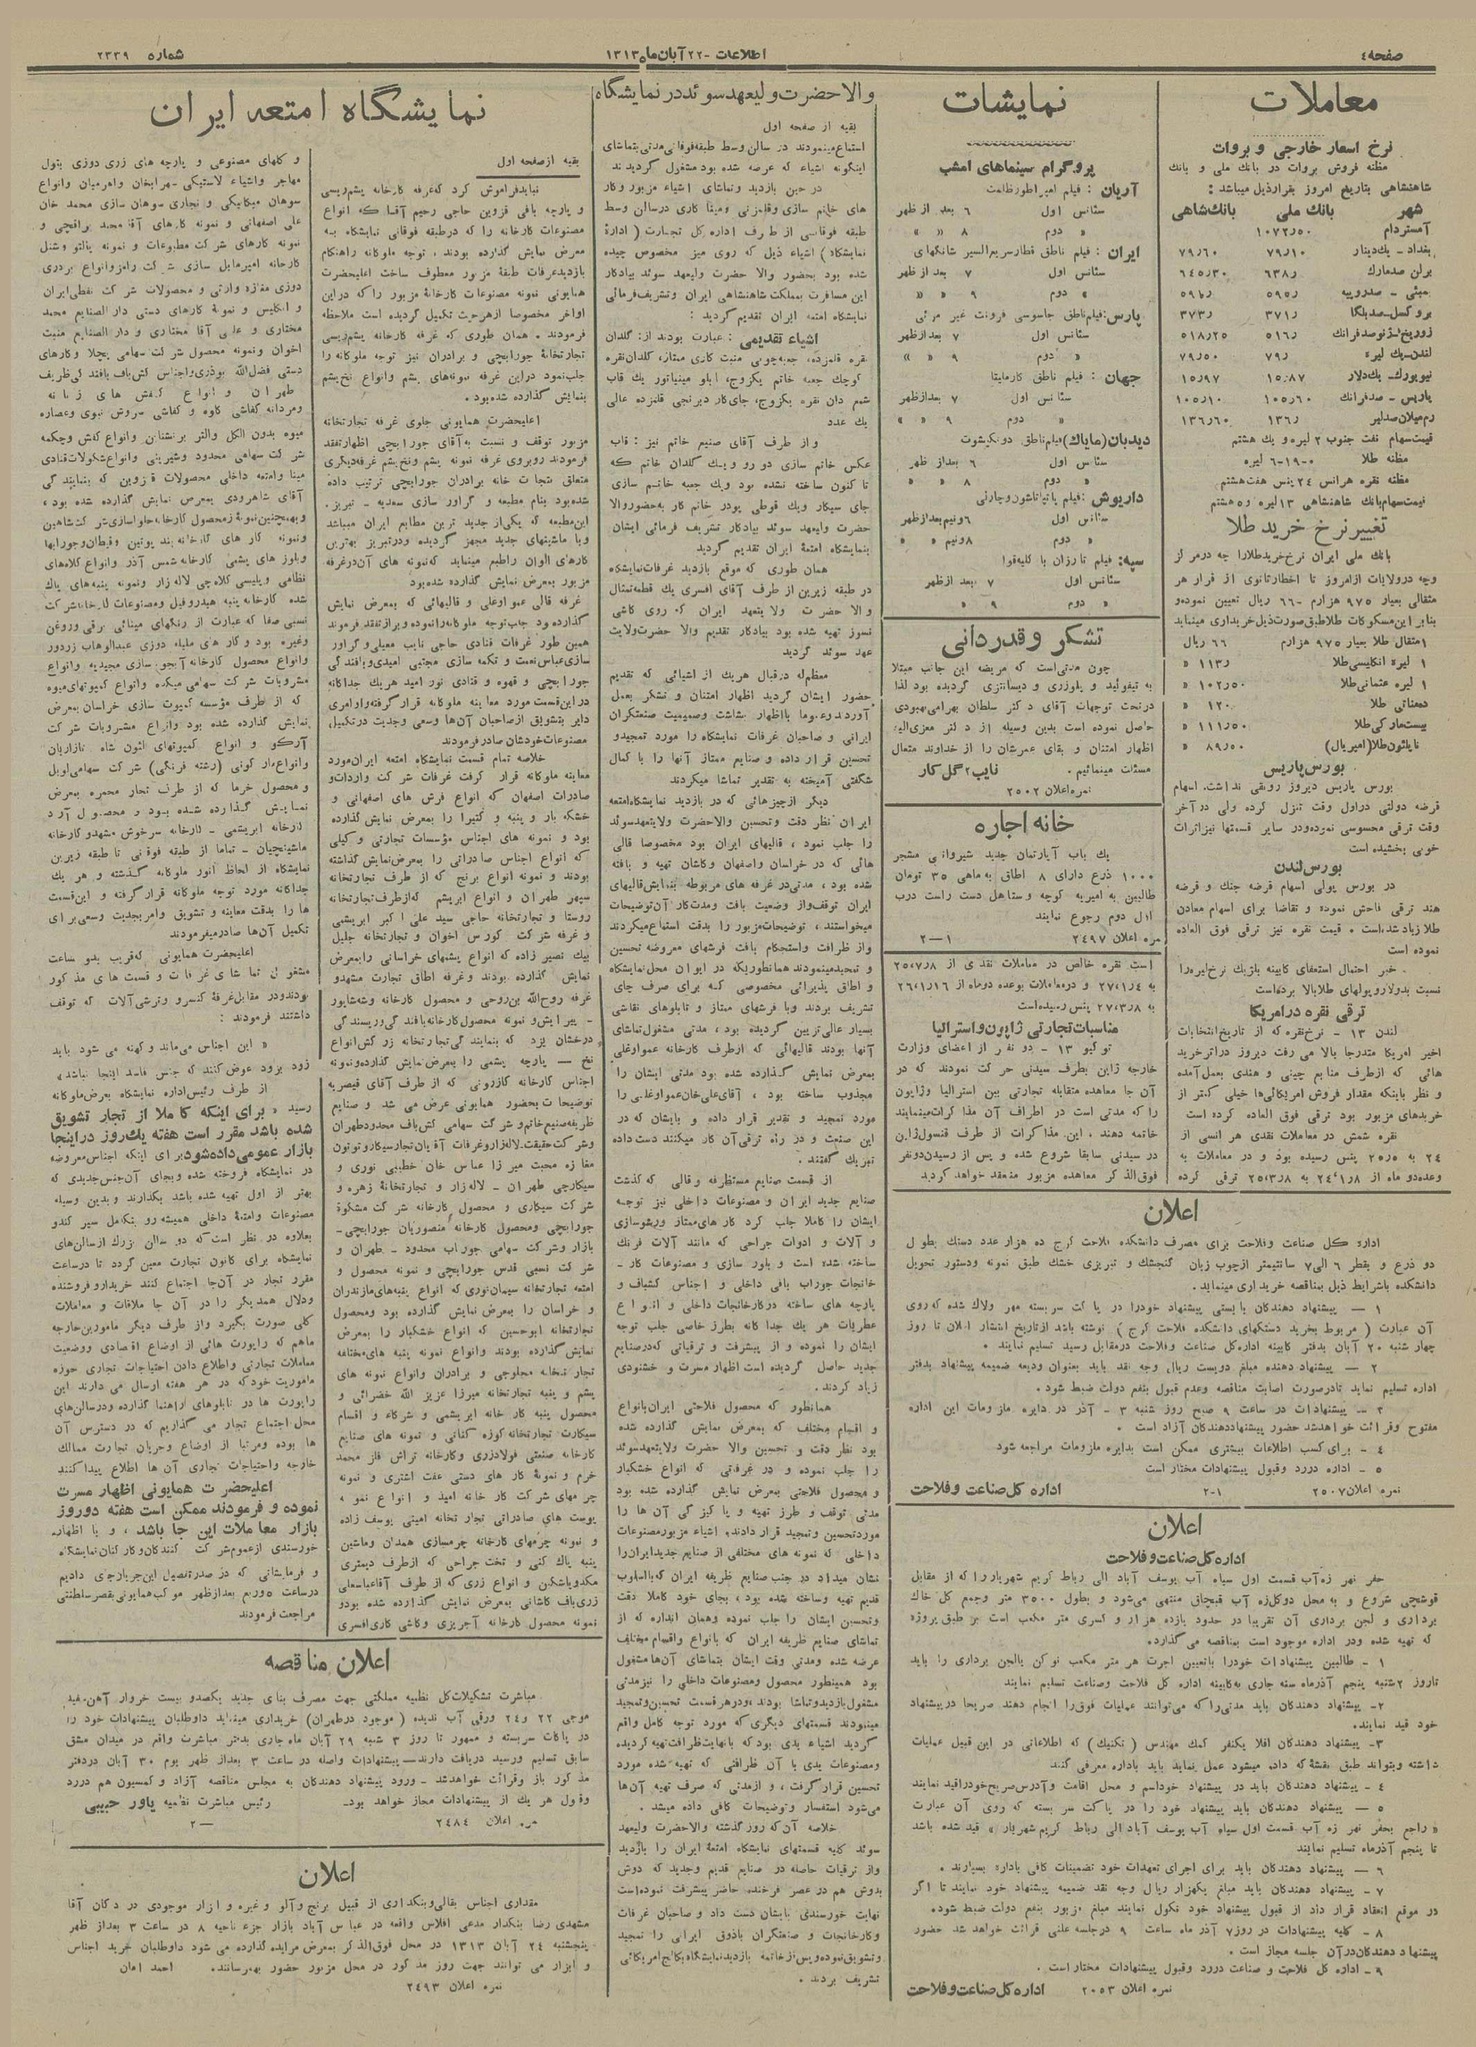 صفحه ٤
اطلاعات - ۲۲ آبان ماه ۱۳۱۳
شماره ۲۳۳۹
معاملات
نرخ اسعار خارجی و بروات
مظنه فروش بروات در بانک ملی و بانک
شاهنشاهی بتاریخ امروز بقرار ذیل میباشد :
شهر بانک ملی بانک شاهی
آمستردام ۱۰۷۲ر۵۰
بغداد - یک دینار ۷۹ر۱۰ ۷۹ر۶۰
برلن صدمارک ۶۳۸ر ۶۴۵ر۳۰
بمبئی - صدروپیه ۵۹۵ر ۵۹۶ر
بروکسل - صدبلگا ۳۷۱ر ۳۷۳ر
زوریخ - ژنو صدفرانک ۵۱۶ر ۵۱۸ر۲۵
لندن - یک لیره ۷۹ر ۷۹ر۵۰
نیویورک - یک دلار ۱۵ر۸۷ ۱۵ر۹۷
پاریس - صدفرانک ۱۰۵ر۶۰ ۱۰۵ر۱۰
رم میلان صدلیر ۱۳۶ر ۱۳۶ر۶۰
قیمت سهام نفت جنوب ۲ لیره و یک هشتم
مظنه طلا ۰-۱۹-۶ لیره
مظنه نقره هرانس ۲۴ پنس هفت هشتم
قیمت سهام بانک شاهنشاهی ۱۳ لیره و ۵ هشتم
تغییر نرخ خرید طلا
بانک ملی ایران نرخ خرید طلا را چه در مرکز
وچه در ولایات از امروز تا اخطار ثانوی از قرار هر
مثقالی بعیار ۹۷۵ هزارم ۶۶۰ ریال تعیین نموده و
بنابر این مسکوکات طلا طبق صورت ذیل خریداری مینماید
۱ مثقال طلا بعیار ۹۷۵ هزارم ۶۶ ریال
۱ لیره انگلیسی طلا ۱۱۳ر «
۱ لیره عثمانی طلا ۱۰۲ر۵۰ «
ده مناتی طلا ۱۲۰ «
بیست مارکی طلا ۱۱۱ر۵۰ «
ناپلئون طلا (امپریال) ۸۹ر۵۰ «
بورس پاریس
بورس پاریس دیروز رونقی نداشت. اسهام
قرضه دولتی در اول وقت تنزل کرده ولی در آخر
وقت ترقی محسوسی نموده و در سایر قسمتها نیز اثرات
خوبی بخشیده است
بورس لندن
در بورس پولی اسهام قرضه جنگ و قرضه
هند ترقی فاحش نموده و تقاضا برای اسهام معادن
طلا زیاد شده است . قیمت نقره نیز ترقی فوق العاده
نموده است
خبر احتمال استعفای کابینه بلژیک نرخ لیره را
نسبت بدولار و پولهای طلا بالا برده است
ترقی نقره در امریکا
لندن ۱۳ - نرخ نقره که از تاریخ انتخابات
اخیر امریکا متدرجا بالا می رفت دیروز در اثر خرید
هائی که از طرف منابع چینی و هندی بعمل آمده
و نظر باینکه مقدار فروش امریکائی ها خیلی کمتر از
خریدهای مزبور بود ترقی فوق العاده کرده است
نقره شمش در معاملات نقدی هر انسی از
وعده دو ماه از ۲۴ر۱ر۸ به ۲۵ر۳ر۸ ترقی کرده
نمایشات
پروگرام سینماهای امشب
آریان : فیلم امپراطور ظلمت
سئانس اول ۶ بعد از ظهر
« دوم ۸ « «
ایران : فیلم ناطق قطار سریع السیر شانگهای
سئانس اول ۷ بعد از ظهر
« دوم ۹ « «
پارس : فیلم ناطق جاسوسی فرونت غیر مرئی
سئانس اول ۷ بعد از ظهر
« دوم ۹ « «
جهان : فیلم ناطق کارمانیتا
سئانس اول ۷ بعد از ظهر
« دوم ۹ « «
دیدبان (مایاک) فیلم ناطق دونکیشوت
سئانس اول ۶ بعد از ظهر
« دوم ۸ « «
داریوش : فیلم پات پاتاشون و چارتی
سئانس اول ۶ و نیم بعد از ظهر
« دوم ۸ و نیم « «
سپه : فیلم تارزان با کلیه قوا
سئانس اول ۷ بعد از ظهر
« دوم ۹ «
تشکر و قدردانی
چون مدتی است که مریضه این جانب مبتلا
به تیفوئید و پلورزی و دیسانتری گردیده بود لذا
در تحت توجهات آقای دکتر سلطان بهرامی بهبودی
حاصل نموده است بدین وسیله از دکتر معزی الیه
اظهار امتنان و بقای عمرشان را از خداوند متعال
مسئلت مینمائیم . نایب ۲ گل کار
نمره اعلان ۲۵۰۲
خانه اجاره
یک باب آپارتمان جدید شیروانی مشجر
۱۰۰۰ ذرع دارای ۸ اطاق به ماهی ۳۵ تومان
طالبین به امیریه کوچه وستاهل دست راست درب
اول دوم رجوع نمایند
نمره اعلان ۲۴۹۷ ۱—۲
است نقره خالص در معاملات نقدی از ۲۵ر۷ر۸
به ۲۷ر۱ر۴ و در معاملات بوعده دو ماه از ۲۶ر۱ر۱۶
به ۲۷ر۳ر۸ پنس رسیده است
مناسبات تجارتی ژاپون و استرالیا
توکیو ۱۳ - دو نفر از اعضای وزارت
خارجه ژاپن بطرف سیدنی حرکت نمودند که در
آن جا معاهده متقابله تجارتی بین استرالیا و ژاپون
را که مدتی است در اطراف آن مذاکرات مینمایند
خاتمه دهند . این مذاکرات از طرف قنسول ژاپن
در سیدنی سابقا شروع شده و پس از رسیدن دو نفر
فوق الذکر معاهده مزبور منعقد خواهد گردید
اعلان
اداره کل صناعت و فلاحت برای مصرف دانشکده فلاحت کرج ده هزار عدد دستک بطول
دو ذرع و بقطر ۶ الی ۷ سانتیمتر از چوب زبان گنجشک و تبریزی خشک طبق نمونه و دستور تحویل
دانشکده بشرایط ذیل بمناقصه خریداری مینماید.
۱ — پیشنهاد دهندگان بایستی پیشنهاد خود را در پاکت سر بسته مهر و لاک شده که روی
آن عبارت ( مربوط بخرید دستکهای دانشکده فلاحت کرج ) نوشته باشد از تاریخ انتشار اعلان تا روز
چهارشنبه ۲۰ آبان بدفتر کابینه اداره کل صناعت و فلاحت در مقابل رسید تسلیم نمایند .
۲ — پیشنهاد دهنده مبلغ دویست ریال وجه نقد باید بعنوان ودیعه ضمیمه پیشنهاد بدفتر
اداره تسلیم نماید تا در صورت اصابت مناقصه و عدم قبول بنفع دولت ضبط شود .
۳ — پیشنهادات در ساعت ۹ صبح روز شنبه ۳ - آذر در دایره ملزومات این اداره
مفتوح و قرائت خواهد شد حضور پیشنهاد دهندگان آزاد است .
٤ - برای کسب اطلاعات بیشتری ممکن است بدایره ملزومات مراجعه شود
٥ - اداره در رد و قبول پیشنهادات مختار است
نمره اعلان ۲۵۰۷ ۱-۲ اداره کل صناعت و فلاحت
اعلان
اداره کل صناعت و فلاحت
حفر نهر زه آب قسمت اول سیاه آب یوسف آباد الی رباط کریم شهریار را که از مقابل
قوشچی شروع و به محل دو کل زه آب قبچاق منتهی می‌شود و بطول ۳۵۰۰ متر و جمع کل خاک
برداری و لجن برداری آن تقریبا در حدود یازده هزار و کسری متر مکعب است بر طبق پروژه
که تهیه شده و در اداره موجود است بمناقصه می گذارد.
۱ - طالبین پیشنهادات خود را با تعیین اجرت هر متر مکعب نوکن یا لجن برداری را باید
تا روز ۲شنبه پنجم آذر ماه سنه جاری به کابینه اداره کل فلاحت و صناعت تسلیم نمایند
۲- پیشنهاد دهندگان باید مدتی را که می‌توانند عملیات فوق را انجام دهند صریحا در پیشنهاد
خود قید نمایند.
۳- پیشنهاد دهندگان اقلا یکنفر کمک مهندس ( تکنیک ) که اطلاعاتی در این قبیل عملیات
داشته و بتواند طبق نقشه که داده میشود عمل نماید باید باداره معرفی کنند
٤ - پیشنهاد دهندگان باید در پیشنهاد خود اسم و محل اقامت و آدرس صریح خود را قید نمایند
٥ — پیشنهاد دهندگان باید پیشنهاد خود را در پاکت سر بسته که روی آن عبارت
« راجع بحفر نهر زه آب قسمت اول سیاه آب یوسف آباد الی رباط کریم شهریار » قید شده باشد
تا پنجم آذر ماه تسلیم نمایند
۶ — پیشنهاد دهندگان باید برای اجرای تعهدات خود تضمینات کافی باداره بسپارند .
۷ - پیشنهاد دهندگان باید مبلغ یکهزار ریال وجه نقد ضمیمه پیشنهاد خود نمایند تا اگر
در موقع انعقاد قرار داد از قبول پیشنهاد خود نکول نمایند مبلغ مزبور بنفع دولت ضبط شود.
۸ - کلیه پیشنهادات در روز ۷ آذر ماه ساعت ۹ در جلسه علنی قرائت خواهد شد حضور
پیشنهاد دهندگان در آن جلسه مجاز است .
۹ - اداره کل فلاحت و صناعت در رد و قبول پیشنهادات مختار است .
نمره اعلان ۲۰۵۳ اداره کل صناعت و فلاحت
والاحضرت ولیعهد سوئد در نمایشگاه
بقیه از صفحه اول
استماع مینمودند در سالن وسط طبقه فوقانی مدتی بتماشای
اینگونه اشیاء که عرضه شده بود مشغول گردیدند
در حین بازدید و تماشای اشیاء مزبور و کار
های خاتم سازی و قلمزنی و مینا کاری در سالن وسط
طبقه فوقانی از طرف اداره کل تجارت ( ادارهٔ
نمایشگاه ) اشیاء ذیل که روی میز مخصوص چیده
شده بود بحضور والا حضرت ولیعهد سوئد بیادگار
این مسافرت بمملکت شاهنشاهی ایران و تشریف فرمائی
نمایشگاه امتعه ایران تقدیم گردید :
اشیاء تقدیمی : عبارت بودند از: گلدان
نقره قلمزده، جعبه چوبی منبت کاری ممتاز، گلدان نقره
کوچک جعبه خاتم یکزوج، تابلو مینیاتور یک قاب
شمعدان نقره یکزوج، جای کارد برنجی قلمزده عالی
یک عدد
و از طرف آقای صنیع خاتم نیز : قاب
عکس خاتم سازی دو رو و یک گلدان خاتم که
تا کنون ساخته نشده بود و یک جعبه خاتم سازی
جای سیگار و یک قوطی پودر خاتم کار به حضور والا
حضرت ولیعهد سوئد بیادگار تشریف فرمائی ایشان
بنمایشگاه امتعهٔ ایران تقدیم گردید
همان طوری که موقع بازدید غرفات نمایشگاه
در طبقه زیرین از طرف آقای افسری یک قطعه تمثال
والا حضرت ولایتعهد ایران که روی کاشی
نسوز تهیه شده بود بیادگار تقدیم والا حضرت ولایت
عهد سوئد گردید
معظم له در قبال هر یک از اشیائی که تقدیم
حضور ایشان گردید اظهار امتنان و تشکر بعمل
آوردند و عموما با اظهار بشاشت و صمیمیت صنعتگران
ایرانی و صاحبان غرفات نمایشگاه را مورد تمجید و
تحسین قرار داده و صنایع ممتاز آنها را با کمال
شگفتی آمیخته به تقدیر تماشا میکردند
دیگر از چیزهائی که در بازدید نمایشگاه امتعه
ایران نظر دقت و تحسین والاحضرت ولایتعهد سوئد
را جلب نمود ، قالیهای ایران بود مخصوصا قالی
هائی که در خراسان و اصفهان و کاشان تهیه و بافته
شده بود ، مدتی در غرفه های مربوطه بنمایش قالیهای
ایران توقف و از وضعیت بافت و مدت کار آن توضیحات
میخواستند ، توضیحات مزبور را بدقت استماع میکردند
و از ظرافت و استحکام بافت فرشهای معروضه تحسین
و تمجید مینمودند همانطوریکه در ایوان محل نمایشگاه
و اطاق پذیرائی مخصوصی که برای صرف چای
تشریف بردند و با فرشهای ممتاز و تابلوهای نقاشی
بسیار عالی تزیین گردیده بود ، مدتی مشغول تماشای
آنها بودند قالیهائی که از طرف کارخانه عمو اوغلی
بمعرض نمایش گذارده شده بود مدتی ایشان را
مجذوب ساخته بود ، آقای علی خان عمو اوغلی را
مورد تمجید و تقدیر قرار داده و بایشان که در
این صنعت و در راه ترقی آن کار میکنند دست داده
تبریک گفتند .
از قسمت صنایع مستظرفه و قالی که گذشت
صنایع جدید ایران و مصنوعات داخلی نیز توجه
ایشان را کاملا جلب کرد کارهای ممتاز ورشو سازی
و آلات و ادوات جراحی که مانند آلات فرنگ
ساخته شده است و بلور سازی و مصنوعات کار -
خانجات جوراب بافی داخلی و اجناس کشباف و
پارچه های ساخته در کارخانجات داخلی و انواع
عطریات هر یک جداگانه بطرز خاصی جلب توجه
ایشان را نموده و از پیشرفت و ترقیاتی که در صنایع
جدید حاصل گردیده است اظهار مسرت و خشنودی
زیاد کردند .
همانطور که محصول فلاحتی ایران با انواع
و اقسام مختلف که بمعرض نمایش گذارده شده
بود نظر دقت و تحسین والا حضرت ولایتعهد سوئد
را جلب نموده و در غرفاتی که انواع خشکبار
و محصول فلاحتی بمعرض نمایش گذارده شده بود
مدتی توقف و طرز تهیه و پاکیزگی آن ها را
مورد تحسین و تمجید قرار دادند. اشیاء مزبور مصنوعات
داخلی که نمونه های مختلفی از صنایع جدید ایران را
نشان میداد در جنب صنایع ظریفه ایران که با اسلوب
قدیم تهیه و ساخته شده بود ، بجای خود کاملا دقت
و تحسین ایشان را جلب نموده و همان اندازه که از
تماشای صنایع ظریفه ایران که بانواع و اقسام مختلف
عرضه شده و مدتی وقت ایشان بتماشای آن ها مشغول
بود همینطور محصول و مصنوعات داخلی را نیز مدتی
مشغول بازدید و تماشا بودند و در هر قسمت تحسین و تمجید
مینمودند قسمتهای دیگری که مورد توجه کامل واقع
گردید اشیاء یدی بود که با نهایت ظرافت تهیه گردیده
و مصنوعات یدی با آن ظرافتی که تهیه شده مورد
تحسین قرار گرفت ، و از مدتی که صرف تهیه آن ها
می‌شود استفسار و توضیحات کافی داده میشد .
خلاصه آن که روز گذشته والاحضرت ولیعهد
سوئد کلیه قسمتهای نمایشگاه امتعهٔ ایران را بازدید
و از ترقیات حاصله در صنایع قدیم و جدید که دوش
بدوش هم در عصر فرخنده حاضر پیشرفت نموده است
نهایت خورسندی بایشان دست داد و صاحبان غرفات
و کارخانجات و صنعتگران با ذوق ایرانی را تمجید
و تشویق نموده و پس از خاتمه بازدید نمایشگاه بکالج امریکائی
تشریف بردند .
نمایشگاه امتعه ایران
بقیه از صفحه اول
نباید فراموش کرد که غرفه کارخانه پشم ریسی
و پارچه بافی قزوین حاجی رحیم آقا که انواع
مصنوعات کارخانه را که در طبقه فوقانی نمایشگاه به
معرض نمایش گذارده بودند . توجه ملوکانه را هنگام
بازدید غرفات طبقهٔ مزبور معطوف ساخت اعلیحضرت
همایونی نمونه مصنوعات کارخانهٔ مزبور را که در این
اواخر مخصوصا از هر حیث تکمیل گردیده است ملاحظه
فرمودند . همان طوری که غرفه کارخانه پشم ریسی
تجارتخانهٔ جورابچی و برادران نیز توجه ملوکانه را
جلب نمود در این غرفه نمونه های پشم و انواع نخ پشم
بنمایش گذارده شده بود .
اعلیحضرت همایونی جلوی غرفه تجارتخانه
مزبور توقف و نسبت به آقای جورابچی اظهار تفقد
فرمودند روبروی غرفه نمونه پشم و نخ پشم غرفه دیگری
متعلق بتجارتخانه برادران جورابچی ترتیب داده
شده بود بنام مطبعه و گراور سازی سعدیه - تبریز .
این مطبعه که یکی از جدید ترین مطابع ایران میباشد
و با ماشینهای جدید مجهز گردیده و در تبریز بهترین
کارهای الوان را طبع مینماید که نمونه های آن در غرفه
مزبور بمعرض نمایش گذارده شده بود
غرفه قالی عمو اوغلی و قالیهائی که بمعرض نمایش
گذارده بود جلب توجه ملوکانه را نموده و ابراز تفقد فرمودند
همین طور غرفات قنادی حاجی نایب معیلی و گراور
سازی عباس نعمت و تکمه سازی مجتبی امیدی و بافندگی
جورابچی و قهوه و قنادی نور امید هر یک جداگانه
در این قسمت مورد معاینه ملوکانه قرار گرفته و اوامری
دایر بتشویق از صاحبان آن ها و سعی و جدیت در تکمیل
مصنوعات خودشان صادر فرمودند
خلاصه تمام قسمت نمایشگاه امتعه ایران مورد
معاینه ملوکانه قرار گرفت غرفات شرکت واردات و
صادرات اصفهان که انواع فرش های اصفهانی و
خشکه بار و پنبه و کتیرا را بمعرض نمایش گذارده
بود و نمونه های اجناس مؤسسات تجارتی و کیلی
که انواع اجناس صادراتی را بمعرض نمایش گذاشته
بودند و نمونه انواع برنج که از طرف تجارتخانه
سپهر طهران و انواع ابریشم که از طرف تجارتخانه
روستا و تجارتخانه حاجی سید علی اکبر ابریشمی
و غرفه شرکت کورس اخوان و تجارتخانه جلیل
بیک نصیر زاده که انواع پشمهای خراسانی را بمعرض
نمایش گذارده بودند و غرفه اطاق تجارت مشهد و
غرفه روح الله بن روحی و محصول کارخانه
درخشان یزد که بنمایندگی تجارتخانه زرکش انواع
نخ — پارچه پشمی را بمعرض نمایش گذارده و نمونه
اجناس کارخانه کازرونی که از طرف آقای قیصریه
توضیحات بحضور همایونی عرض می شد و صنایع
ظریفه صنیع خاتم و شرکت سهامی کش باف محدود طهران
و شرکت حقیقت لاله زار و غرفات آقایان تجار سیگار و توتون
مغازه محبت میرزا عباس خان خطیبی نوری و
سیگارچی طهران - لاله زار و تجارتخانهٔ زهره و
شرکت سیگاری و محصول کارخانه شرکت مشکوة
جورابچی و محصول کارخانه منصوریان جورابچی -
بازار و شرکت سهامی جوراب محدود - طهران و
شرکت نسبی قدس جورابچی و نمونه محصول و
امتعه تجارتخانه سیمان نوری که انواع پنبه های مازندران
و خراسان را بمعرض نمایش گذارده بود و محصول
تجارتخانه ابوحسین که انواع خشکبار را بمعرض
نمایش گذارده بودند و انواع نمونه پنبه های مختلفه
تجارتخانه محلوجی و برادران و انواع نمونه های
پشم و پنبه تجارتخانه میرزا عزیز الله خضرائی و
محصول پنبه کارخانه ابریشمی و شرکاء و اقسام
سیگارت تجارتخانه کوزه کنانی و نمونه های صنایع
کارخانه صنعتی فولادزری و کارخانه تراش فلز محمد
خرم و نمونهٔ کارهای دستی عفت اشتری و نمونه
چرمهای شرکت کارخانه امید و انواع نمونه
پوست های صادراتی تجارتخانه امینی یوسف زاده
و نمونه چرمهای کارخانه چرمسازی همدان و ماشین
پنبه پاک کنی و تخت جراحی که از طرف دیمتری
مکدویاشکن و انواع زری که از طرف آقا عباسعلی
زری باف کاشانی بمعرض نمایش گذارده شده بود و
نمونه محصول کارخانه آجریزی و کاشی کاری افسری
و گلهای مصنوعی و پارچه های زری دوزی بتول
مهاجر و اشیاء لاستیکی مهرابخان و اهرمیان و انواع
سوهان میکانیکی و نجاری سوهان سازی محمد خان
علی اصفهانی و نمونه کارهای آقا محمد براقچی و
نمونه کارهای شرکت مطبوعات و نمونه پالتو و شنل
دوزی مغازه وارثی و محصولات شرکت نفطی ایران
و انگلیس و نمونه کارهای دستی دار الصنایع محمد
مختاری و علی آقا مختاری و دار الصنایع منبت
اخوان و نمونه محصول شرکت سهامی یچلا و کارهای
دستی فضل الله بوذری و اجناس کش باف بافندگی ظریف
طهران و انواع کفش های زنانه
و مردانه کفاشی کاوه و کفاشی سروش نبوی و عصاره
میوه بدون الکل والتر برنشتاین و انواع کفش و چکمه
شرکت سهامی محدود و شیرینی و انواع شکولات قنادی
مینا و امتعه داخلی محصولات قزوین که بنمایندگی
آقای شاهرودی بمعرض نمایش گذارده شده بود ،
و همچنین نمونهٔ محصول کارخانه حلواسازی شرکت شاهین
ونمونه کارهای کارخانه بند پوتین و قیطان و جورابها
و بلوز های پشمی کارخانه شمس آذر و انواع کلاه های
نظامی و پلیسی کلاهچی لاله زار و نمونه پنبه های پاک
شده کارخانه پنبه هیدروفیل و مصنوعات کارخانه شرکت
نسبی صفا که عبارت از رنگهای مینائی برقی و روغن
وغیره بود و کارهای ملیله دوزی عبدالوهاب زردوز
و انواع محصول کارخانه آبجو سازی مجیدیه و انواع
مشروبات شرکت سهامی میکده و انواع کمپوتهای میوه
که از طرف مؤسسه کمپوت سازی خراسان بمعرض
نمایش گذارده شده بود و انواع مشروبات شرکت
آرگو و انواع کمپوتهای ائون شاه نازاریان
و انواع مار کونی (رشته فرنگی) شرکت سهامی اوبل
و محصول خرما که از طرف تجار محمره بمعرض
نمایش گذارده شده بود و محصول آرد
کارخانه ابریشمی - کارخانه سرخوش مشهد و کارخانه
ماشینچیان - تماما از طبقه فوقانی تا طبقه زیرین
نمایشگاه از لحاظ انور ملوکانه گذشته و هر یک
جداگانه مورد توجه ملوکانه قرار گرفته و این قسمت
ها را بدقت معاینه و تشویق وامر بجدیت و سعی برای
تکمیل آن ها صادر میفرمودند
اعلیحضرت همایونی که قریب بدو ساعت
مشغول تماشای غرفات و قسمت های مذکور
بودند و در مقابل غرفهٔ کنسرو و ترشی آلات که توقف
داشتند فرمودند :
« این اجناس می‌ماند و کهنه می شود باید
زود بزود عوض کنند که جنس فاسد اینجا نباشد »
از طرف رئیس اداره نمایشگاه بعرض ملوکانه
رسید « برای اینکه کاملا از تجار تشویق
شده باشد مقرر است هفته یک روز در اینجا
بازار عمومی داده شود برای اینکه اجناس معروضه
در نمایشگاه فروخته شده و بجای آن جنس جدیدی که
بهتر از اول تهیه شده باشد بگذارند و بدین وسیله
مصنوعات و امتعهٔ داخلی همیشه رو بتکامل سیر کند و
بعلاوه در نظر است که دو سالن بزرگ از سالن های
نمایشگاه برای کانون تجارت معین گردد تا در ساعت
مقرر تجار در آن جا اجتماع کنند خریدار و فروشنده
و دلال همدیگر را در آن جا ملاقات و معاملات
کلی صورت بگیرد و از طرف دیگر مامورین خارجه
ما هم که راپورت هائی از اوضاع اقتصادی و وضعیت
معاملات تجارتی و اطلاع دادن احتیاجات تجاری حوزه
ماموریت خود که در هر هفته ارسال می دارند این
راپورت ها در تابلوهای راهنما گذارده و در سالن های
محل اجتماع تجار می گذاریم که در دسترس آن
ها بوده و مرتبا از اوضاع و جریان تجارت ممالک
خارجه و احتیاجات تجاری آن ها اطلاع پیدا کنند
اعلیحضرت همایونی اظهار مسرت
نموده و فرمودند ممکن است هفته دو روز
بازار معاملات این جا باشد ، و با اظهار
خورسندی از عموم شرکت کنندگان و کارکنان نمایشگاه
و فرمایشاتی که در صدر تفصیل این جریان جای دادیم
در ساعت ۵ و ربع بعد از ظهر موکب همایونی بقصر سلطنتی
مراجعت فرمودند
اعلان مناقصه
مباشرت تشکیلات کل نظمیه مملکتی جهت مصرف بنای جدید یکصد و بیست خروار آهن سفید
موجی ۲۲ و ۲۴ ورقی آب ندیده ( موجود در طهران ) خریداری مینماید داوطلبان پیشنهادات خود را
در پاکات سربسته و ممهور تا روز ۳ شنبه ۲۹ آبان ماه جاری بدفتر مباشرت واقع در میدان مشق
سابق تسلیم و رسید دریافت دارند — پیشنهادات واصله در ساعت ۳ بعد از ظهر یوم ۳۰ آبان در دفتر
مذکور باز و قرائت خواهد شد - ورود پیشنهاد دهندگان به مجلس مناقصه آزاد و کمسیون هم در رد
و قبول هر یک از پیشنهادات مجاز خواهد بود.- رئیس مباشرت نظمیه یاور حبیبی
نمره اعلان ۲۴۸۴
اعلان
مقداری اجناس بقالی و بنکداری از قبیل برنج و آلو و غیره و ابزار موجودی در دکان آقا
مشهدی رضا بنکدار مدعی افلاس واقعه در عباس آباد بازار جزء ناحیه ۸ در ساعت ۳ بعد از ظهر
پنجشنبه ۲۴ آبان ۱۳۱۳ در محل فوق الذکر بمعرض مزایده گذارده می شود داوطلبان خرید اجناس
و ابزار می توانند جهت روز مذکور در محل مزبور حضور بهم رسانند. احمد امان
نمره اعلان ۲۴۹۳